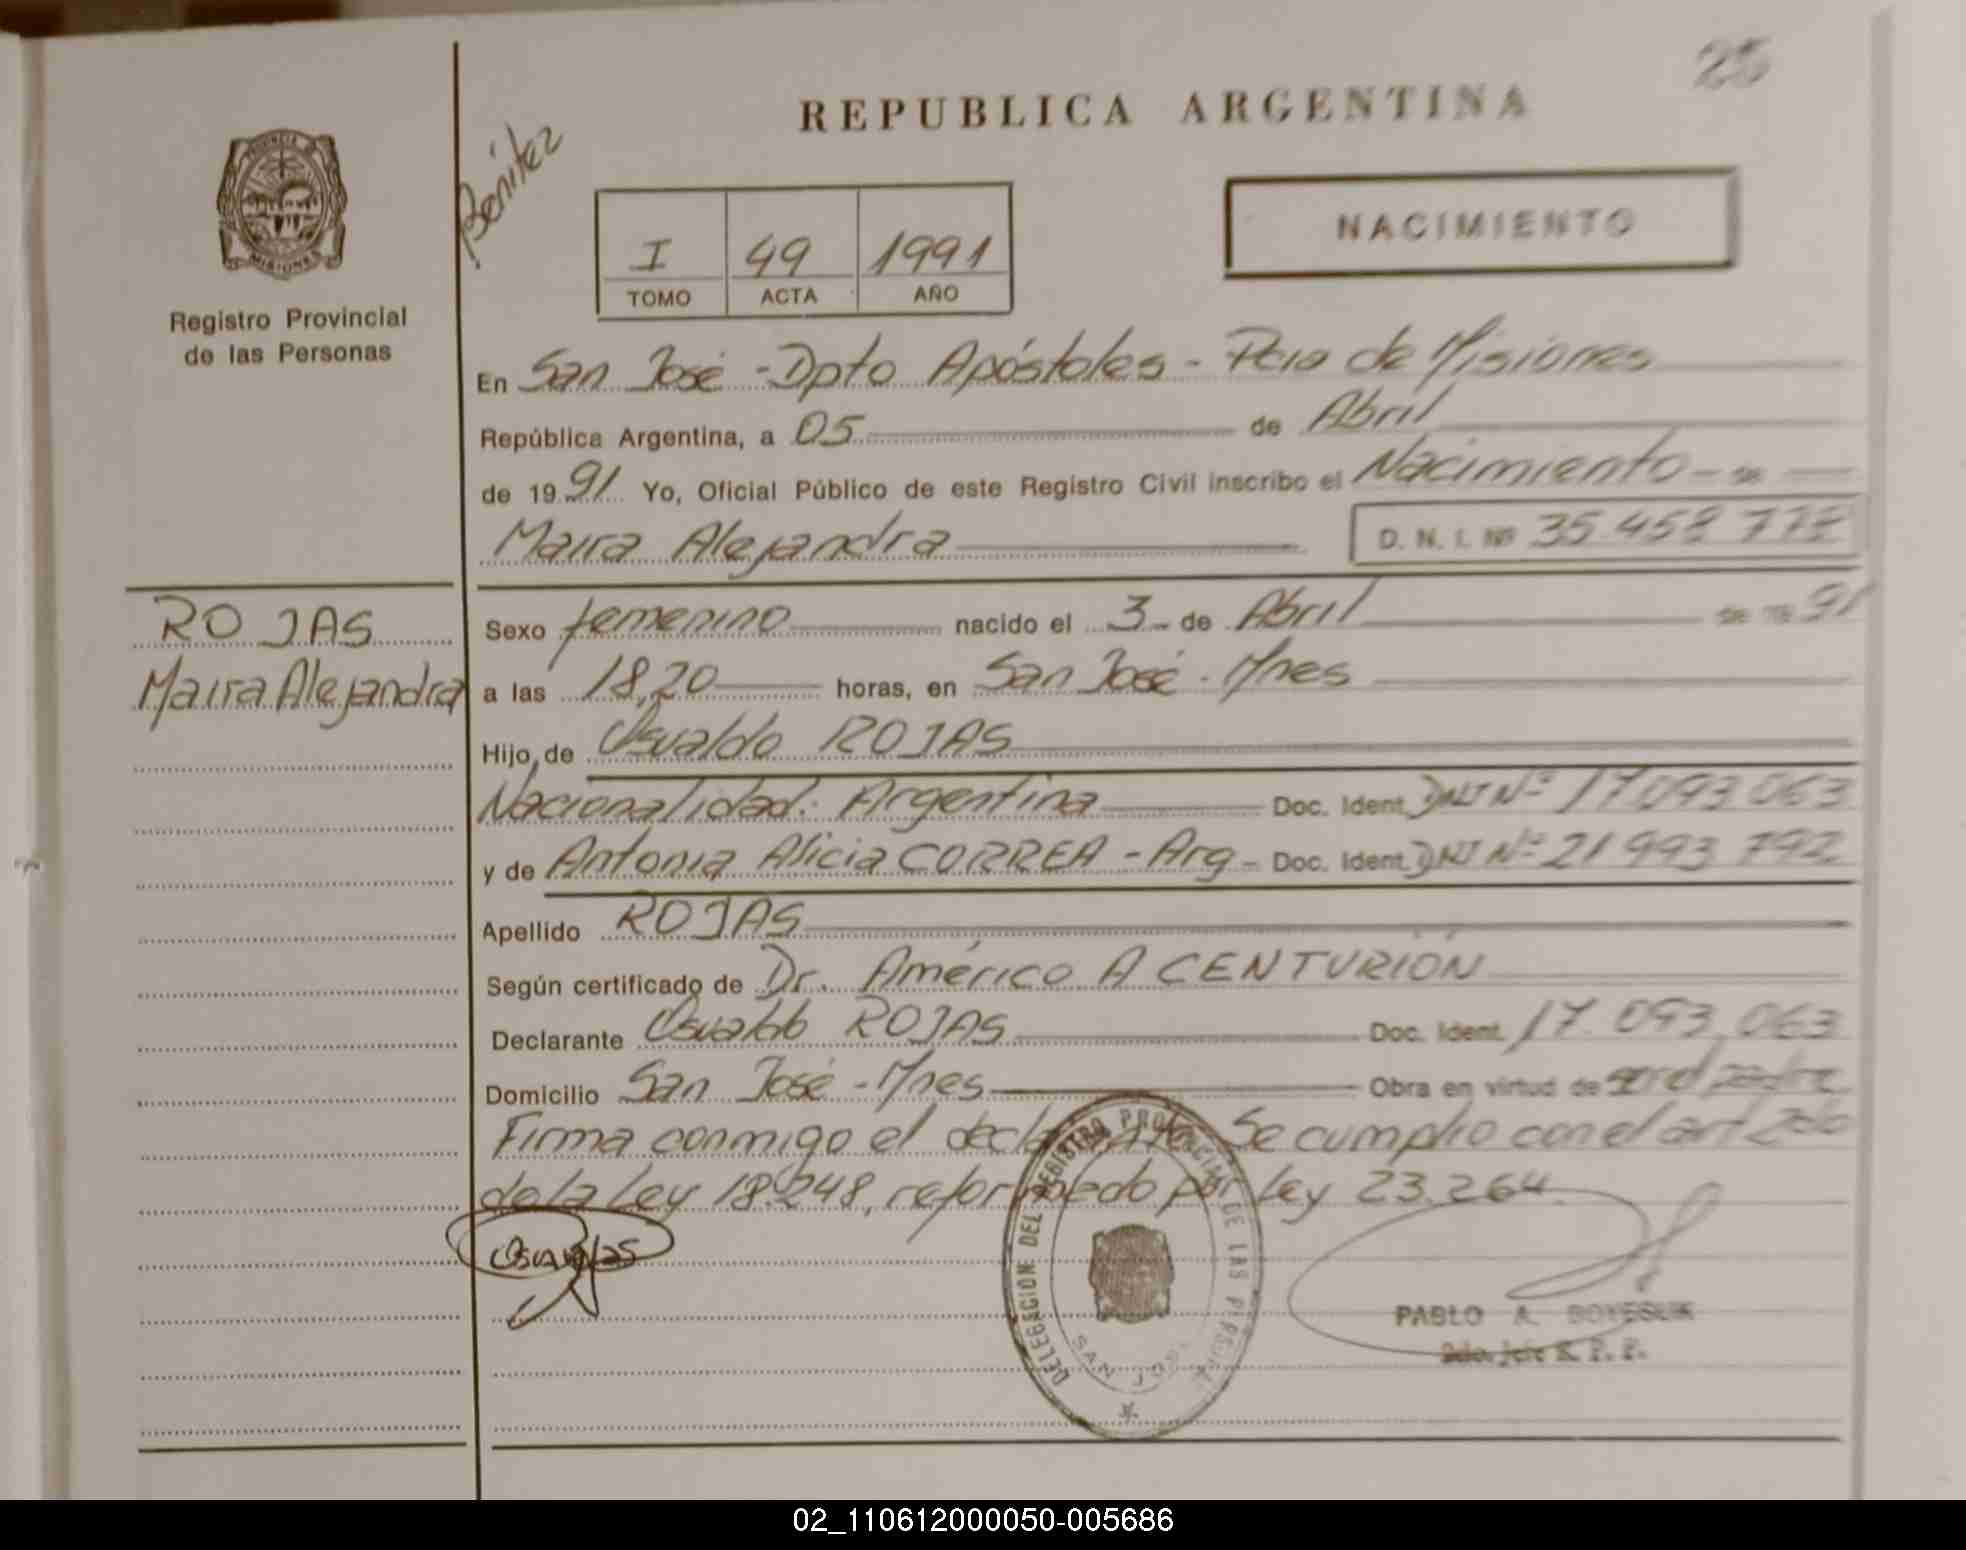 25
REPUBLICA ARGENTINA
Benitez
NACIMIENTO
I 49 1991
TOMO ACTA AÑO
PROVINCIA DE
MISIONES
Registro Provincial
de las Personas
En San José - Dpto Apóstoles - Pcia de Misiones
República Argentina, a 05 de Abril
de 1991 Yo, Oficial Público de este Registro Civil inscribo el Nacimiento - de
Maira Alejandra D. N. I. Nº 35.458 778
ROJAS
Maira Alejandra
Sexo femenino nacido el 3 - de Abril de 1991
a las 18,20 horas, en San José - Mnes
Hijo de Osvaldo ROJAS
Nacionalidad: Argentina Doc. Ident. DNI Nº 17.093.063
y de Antonia Alicia CORREA - Arg - Doc. Ident. DNI Nº 21 993 792
Apellido ROJAS
Según certificado de Dr. Américo A CENTURIÓN
Declarante Osvaldo ROJAS Doc. Ident. 17.093.063
Domicilio San José - Mnes Obra en virtud de ser el padre
Firma conmigo el declarante. Se cumplio con el art 2do
de la Ley 18.248, reformado por Ley 23.264.
DELEGACION DEL REGISTRO PROVINCIAL DE LAS PERSONAS
SAN JOSE
PABLO A. BOYESUK
2do. Jefe R. P. P.
02_110612000050-005686